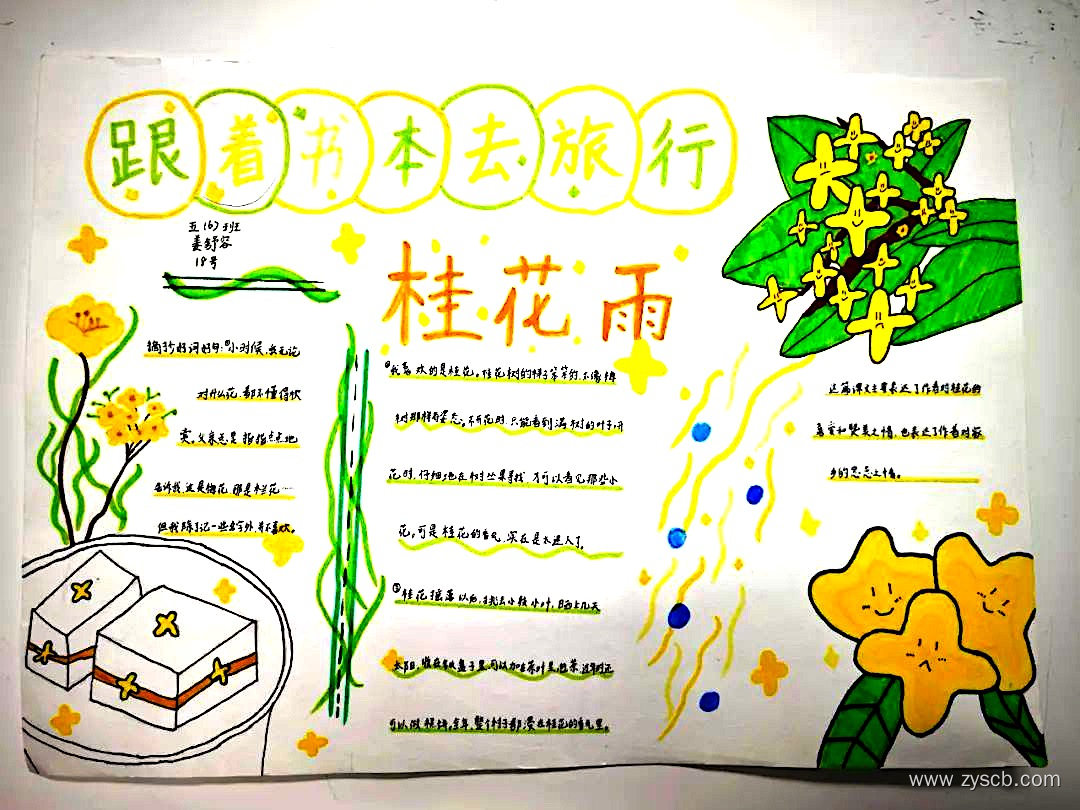 跟着书本去旅行
五(6)班
姜舒容
18号
桂花雨
摘抄好词好句:①小时候,我无论
对什么花,都不懂得欣
赏。父亲总是指指点点地
告诉我,这是梅花,那是木兰花……
但我除了记一些名字外,并不喜欢。
②我喜欢的是桂花。桂花树的样子笨笨的,不像梅
树那样有姿态。不开花时,只能看到满树的叶子;开
花时,仔细地在树丛里寻找,才可以看见那些小
花。可是桂花的香气,实在是太迷人了。
③桂花摇落以后,挑去小枝小叶,晒上几天
太阳,收在铁盒子里,可以加在茶叶里泡茶,过年时还
可以做糕饼。全年,整个村子都浸在桂花的香气里。
这篇课文主要表达了作者对桂花的
喜爱和赞美之情,也表达了作者对家
乡的思念之情。
www.zyscb.com